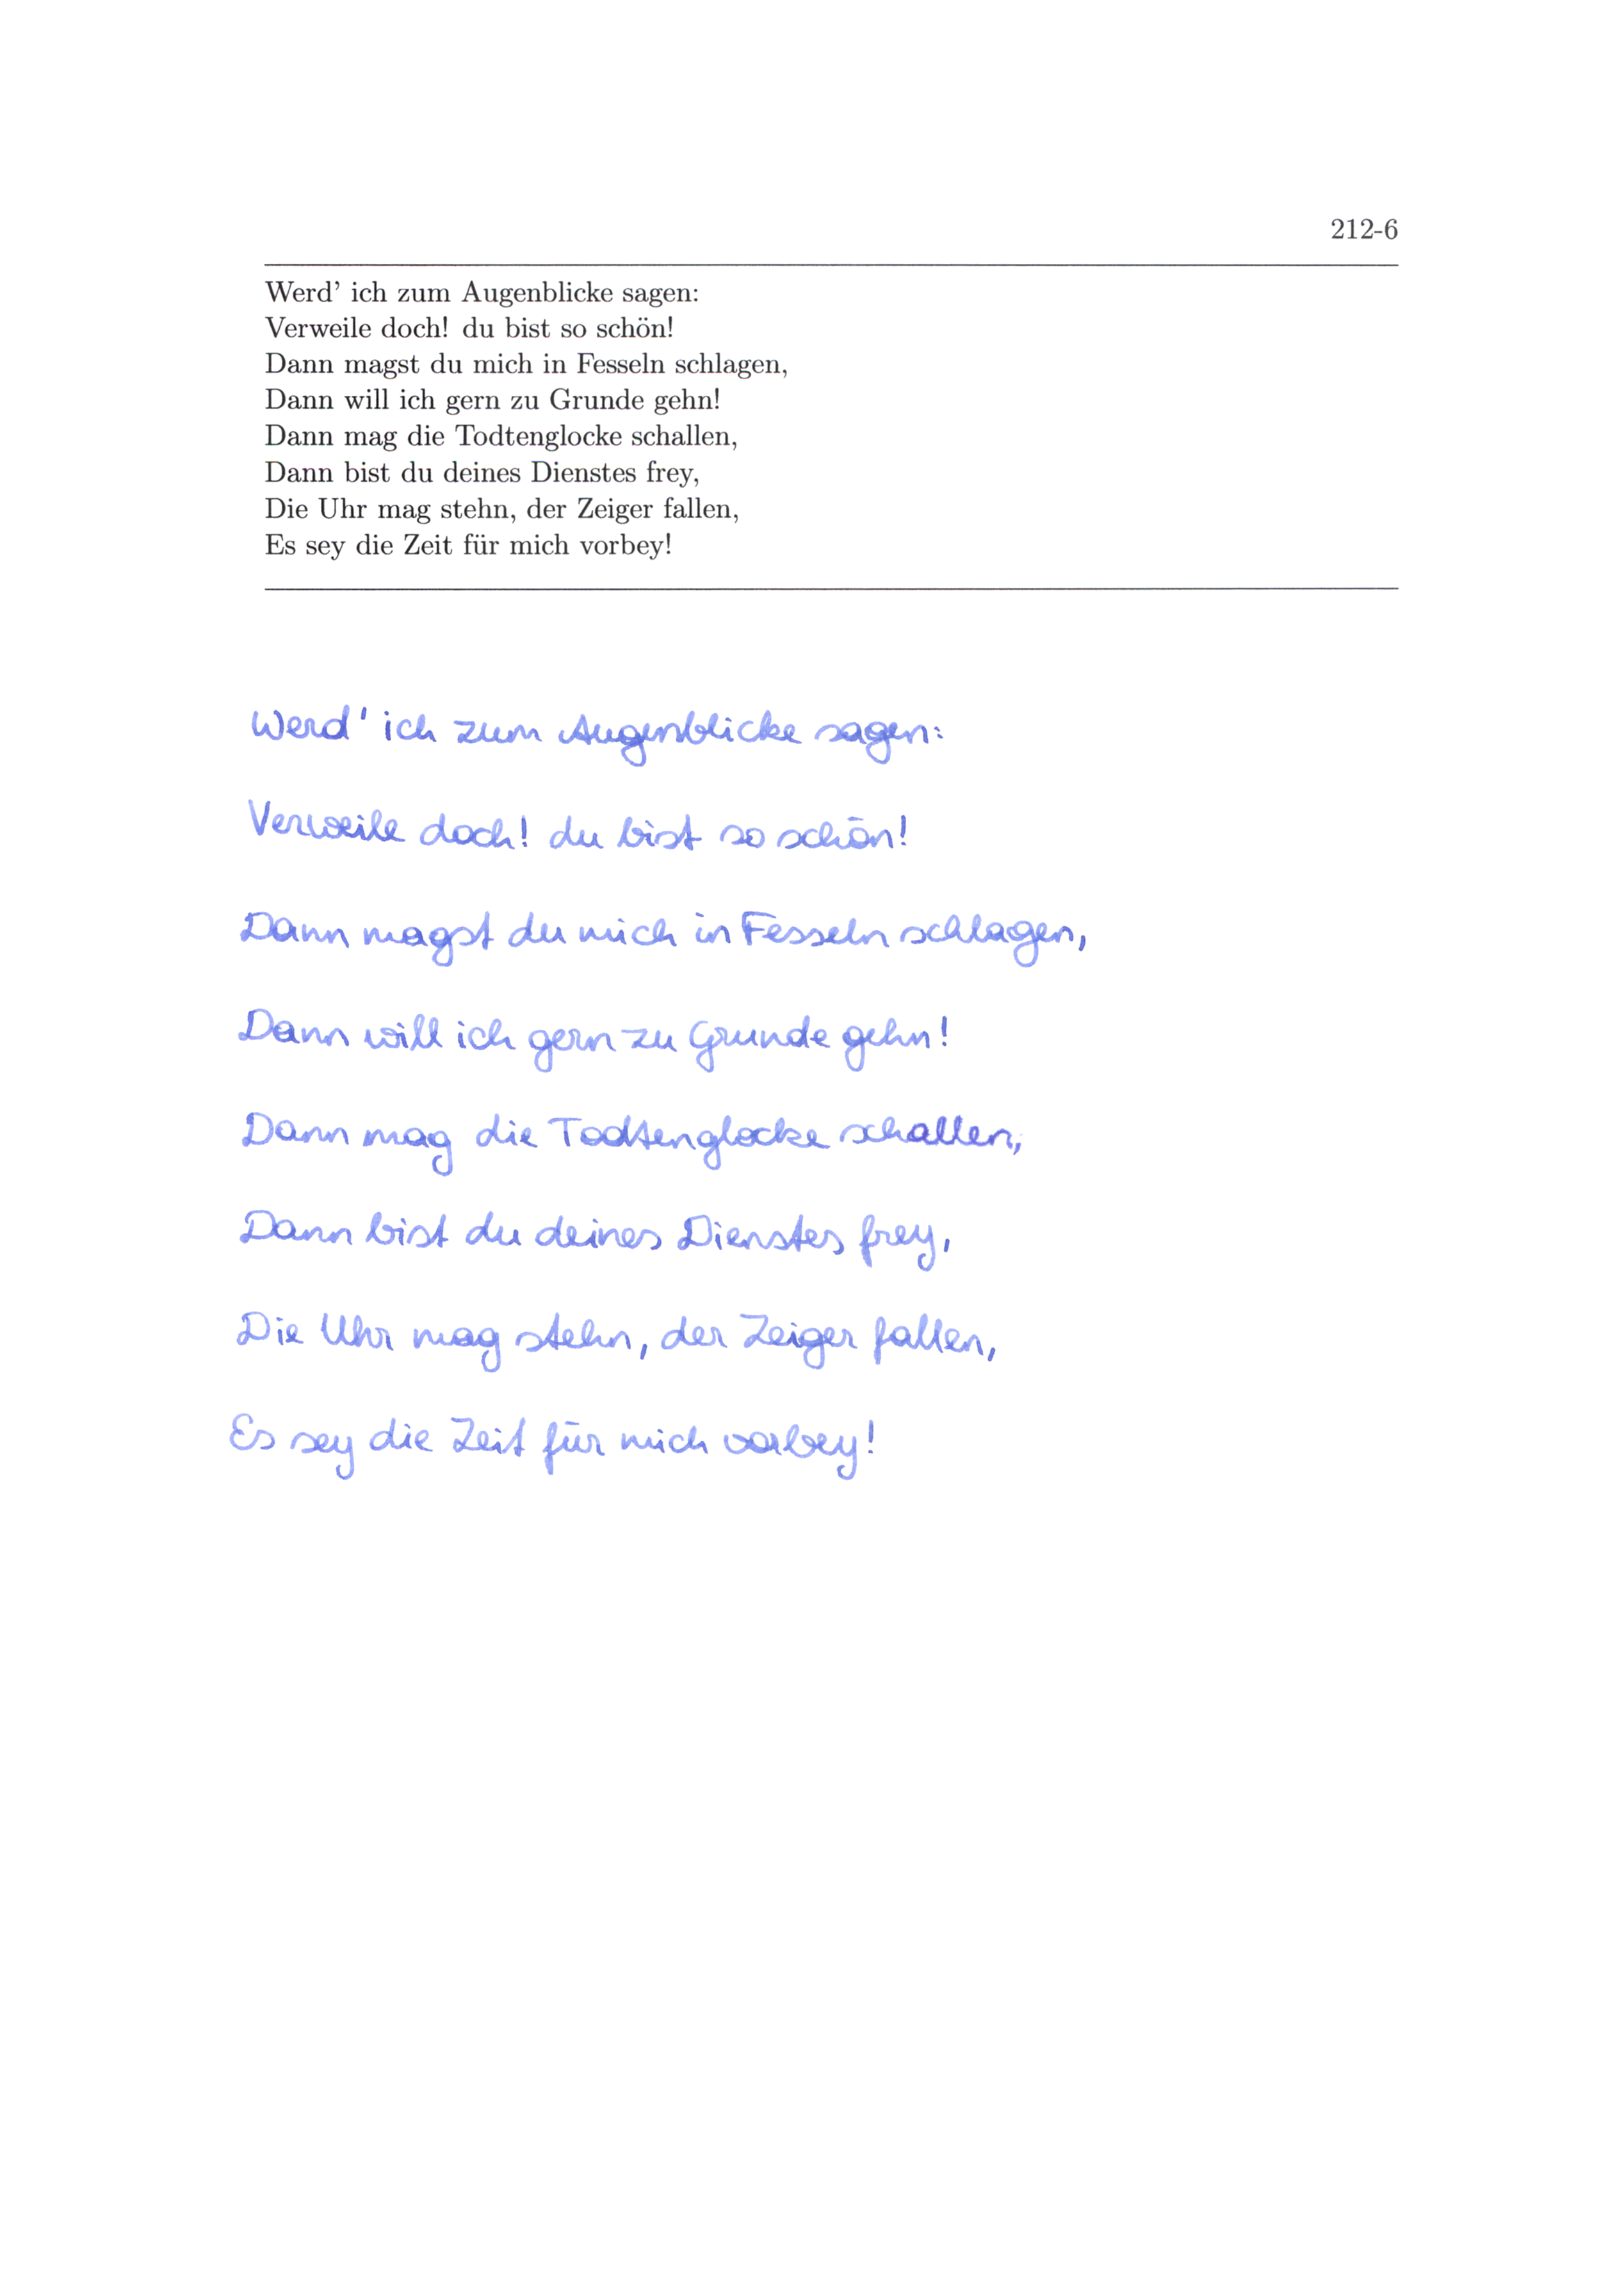 212-6
Werd’ ich zum Augenblicke sagen:
Verweile doch! du bist so schön!
Dann magst du mich in Fesseln schlagen,
Dann will ich gern zu Grunde gehn!
Dann mag die Todtenglocke schallen,
Dann bist du deines Dienstes frey,
Die Uhr mag stehn, der Zeiger fallen,
Es sey die Zeit für mich vorbey!
Werd' ich zum Augenblicke sagen:
Verweile doch! du bist so schön!
Dann magst du mich in Fesseln schlagen,
Dann will ich gern zu Grunde gehn!
Dann mag die Todtenglocke schallen,
Dann bist du deines Dienstes frey,
Die Uhr mag stehn, der Zeiger fallen,
Es sey die Zeit für mich vorbey!